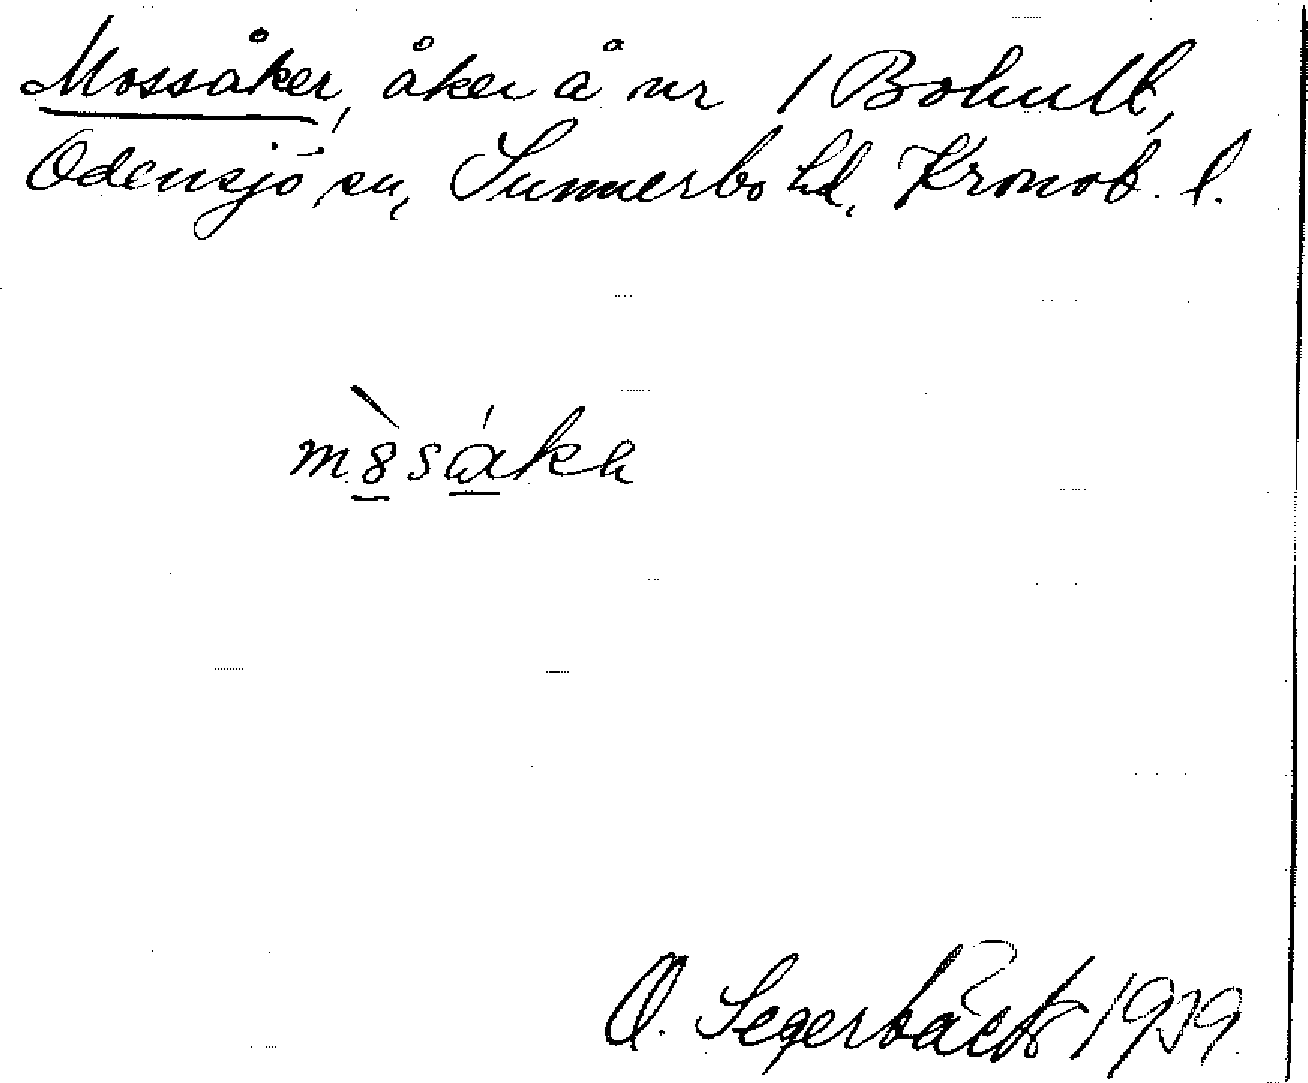 Mossåker, åker å nr 1 Bohult,
Odensjö sn, Sunnerbo hd, Kronob. l.
O. Segerbäck